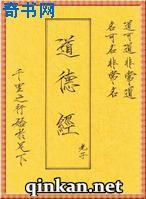 奇书网
道可道非常道
名可名非常名
道德經
老子
千里之行始於足下
qinkan.net